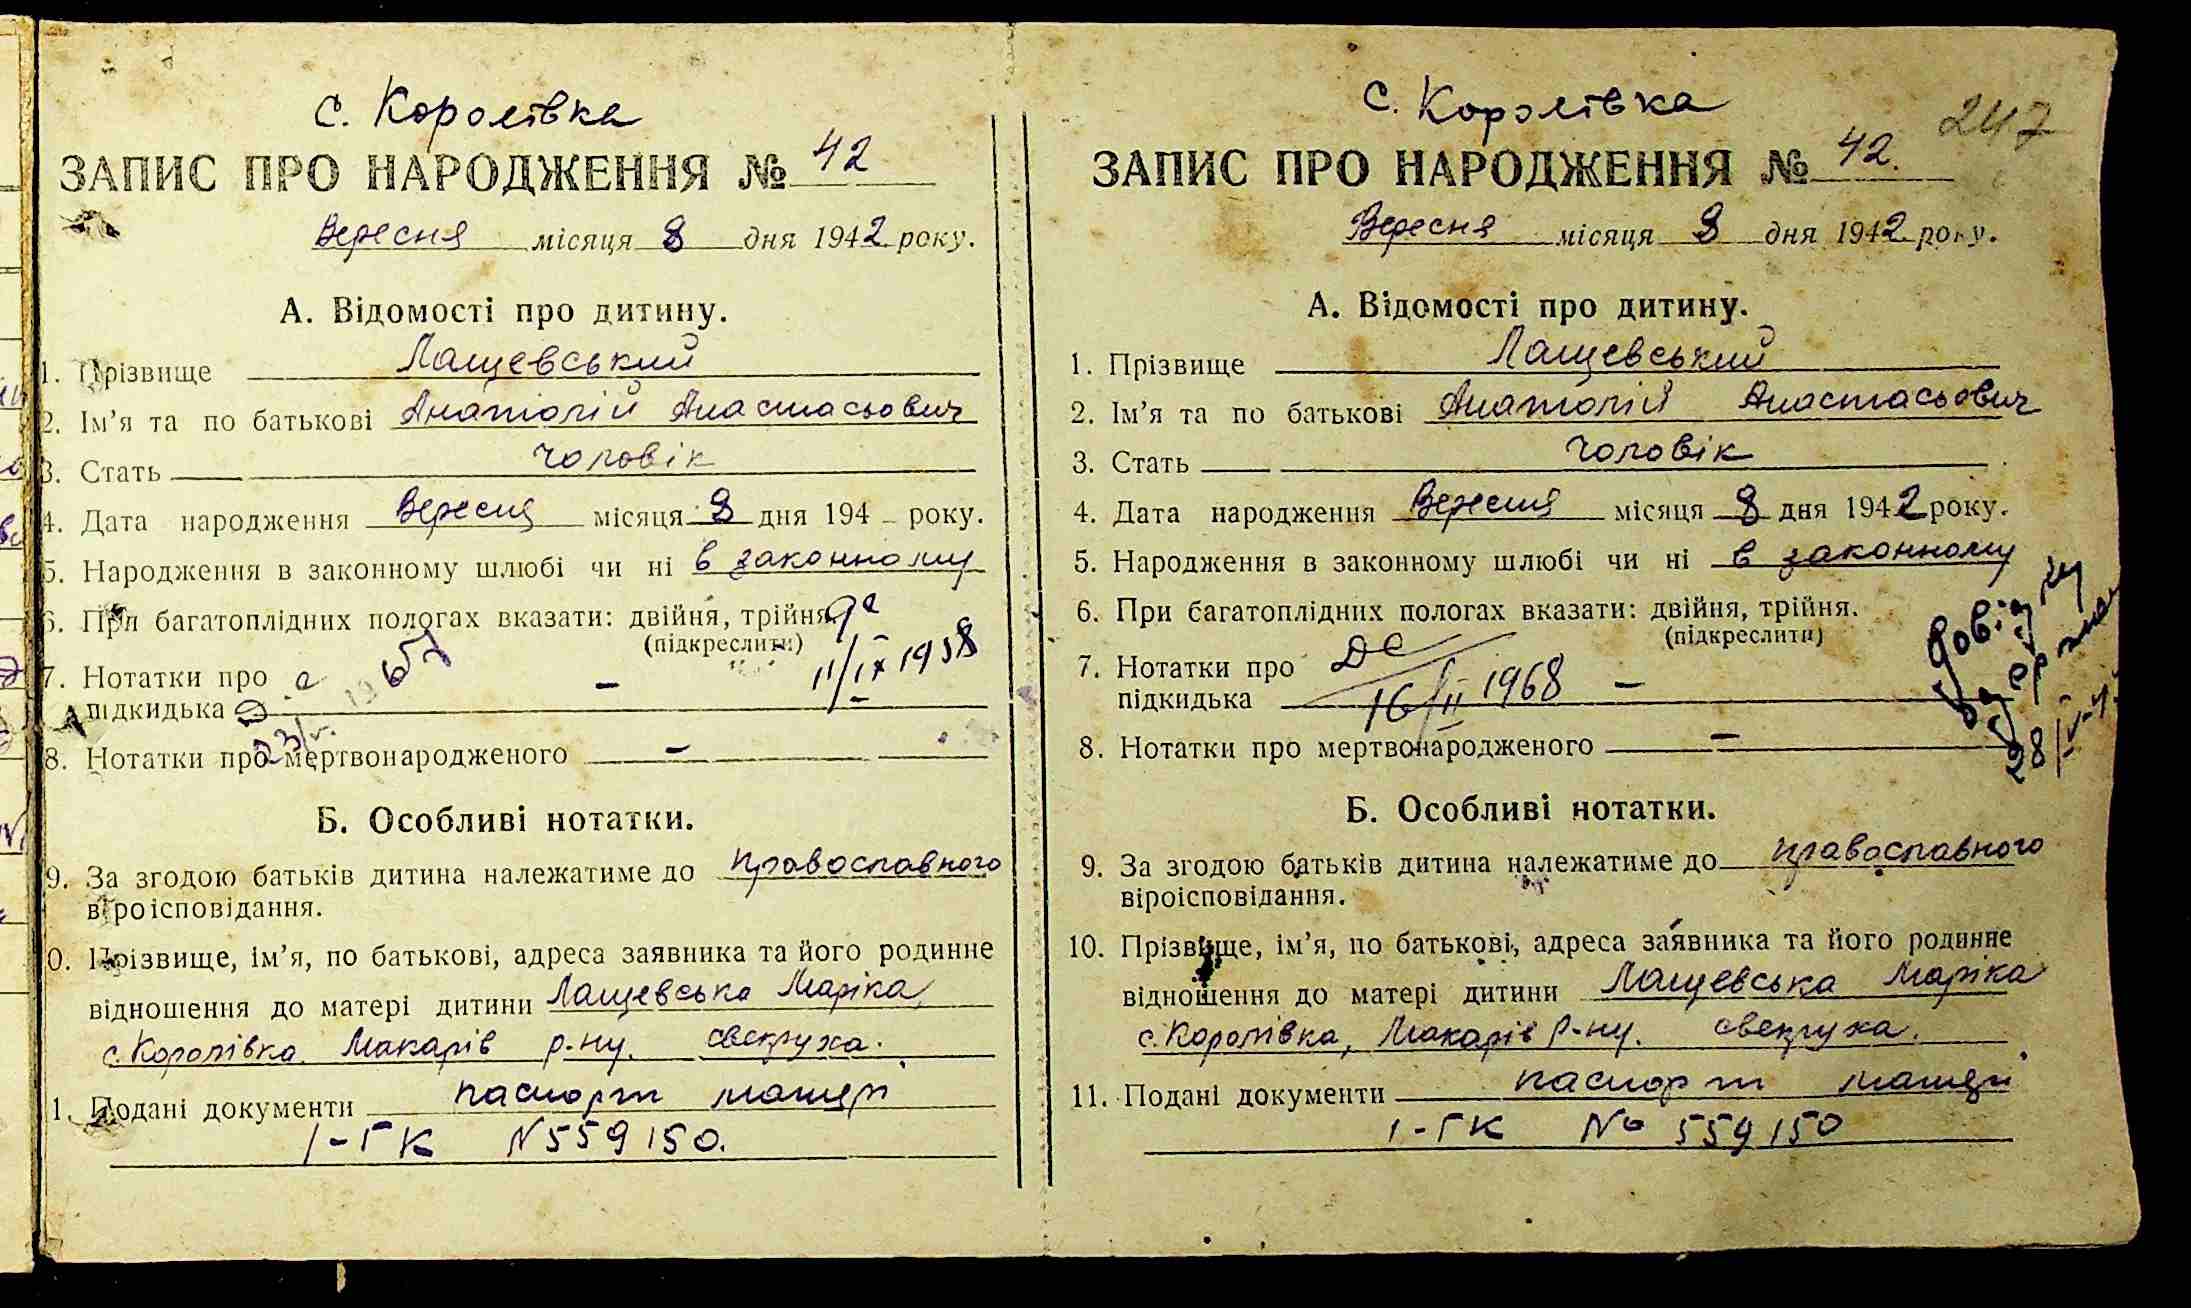 с. Королівка
ЗАПИС ПРО НАРОДЖЕННЯ № 42
Вересня місяця 8 дня 1942 року.
А. Відомості про дитину.
1. Прізвище Лащевський
2. Ім’я та по батькові Анатолій Анастасьович
3. Стать чоловік
4. Дата народження Вересня місяця 8 дня 194 року.
5. Народження в законному шлюбі чи ні в законному
6. При багатоплідних пологах вказати: двійня, трійня.
(підкреслити)
7. Нотатки про
підкидька –
11/IX 1958
8. Нотатки про мертвонародженого –
Б. Особливі нотатки.
9. За згодою батьків дитина належатиме до православного
віроісповідання.
0. Прізвище, ім’я, по батькові, адреса заявника та його родинне
відношення до матері дитини Лащевська Маріка,
с. Королівка. Макарів р-ну. свекруха.
1. Подані документи паспорт матері
1-ГК N 559150.
с. Королівка
247
ЗАПИС ПРО НАРОДЖЕННЯ № 42.
Вересня місяця 8 дня 1942 року.
А. Відомості про дитину.
1. Прізвище Лащевський
2. Ім’я та по батькові Анатолій Анастасьович
3. Стать чоловік
4. Дата народження Вересня місяця 8 дня 1942 року.
5. Народження в законному шлюбі чи ні в законному
6. При багатоплідних пологах вказати: двійня, трійня.
(підкреслити)
7. Нотатки про
підкидька –
16/II 1968
довідку
8. Нотатки про мертвонародженого –
Б. Особливі нотатки.
9. За згодою батьків дитина належатиме до православного
віроісповідання.
10. Прізвище, ім’я, по батькові, адреса заявника та його родинне
відношення до матері дитини Лащевська Маріка
с. Королівка, Макарів р-ну. свекруха.
11. Подані документи паспорт матері
1-ГК № 559150